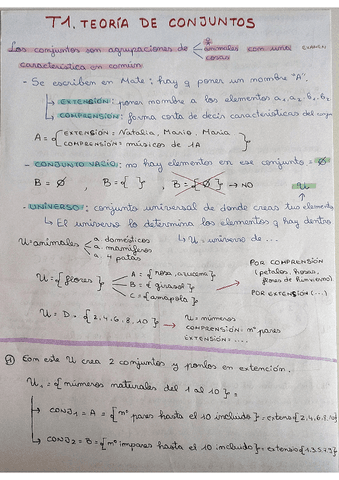 T1. TEORÍA DE CONJUNTOS
Los conjuntos son agrupaciones de animales con una
cosas
característica en común
- Se escriben en Mate: hay q poner un nombre "A".
EXTENSIÓN: poner nombre a los elementos a1, a2, b1, b2
COMPRENSIÓN: forma corta de decir características del
A = { EXTENSIÓN = Natalia, Mario, Maria
COMPRENSIÓN: músicos de 1A }
- CONJUNTO VACÍO: no hay elementos en ese conjunto = Ø
B = Ø , B = { } , B = { Ø } → NO
U
- UNIVERSO: conjunto universal de donde creas tus elementos
↳ El universo lo determina los elementos q hay dentro
U = animales a. domésticos ↳ U = universo de ...
a. mamíferos
a. 4 patas
U = { flores } A = { rosa, azucena }
B = { girasol }
C = { amapola }
POR COMPRENSIÓN
(petalos, hojas,
flores de hinvierno)
POR EXTENSIÓN (...)
U = D = { 2, 4, 6, 8, 10 } → U = números
COMPRENSIÓN: nº pares
EXTENSIÓN: ....
① Con este U crea 2 conjuntos y ponlos en extención.
U1 = { números naturales del 1 al 10 } =
→ CONJ1 = A = { nº pares hasta el 10 incluido } = extens { 2, 4, 6, 8, 10 }
→ CONJ2 = B = { nº impares hasta el 10 incluido } = extensió { 1, 3, 5, 7, 9 }